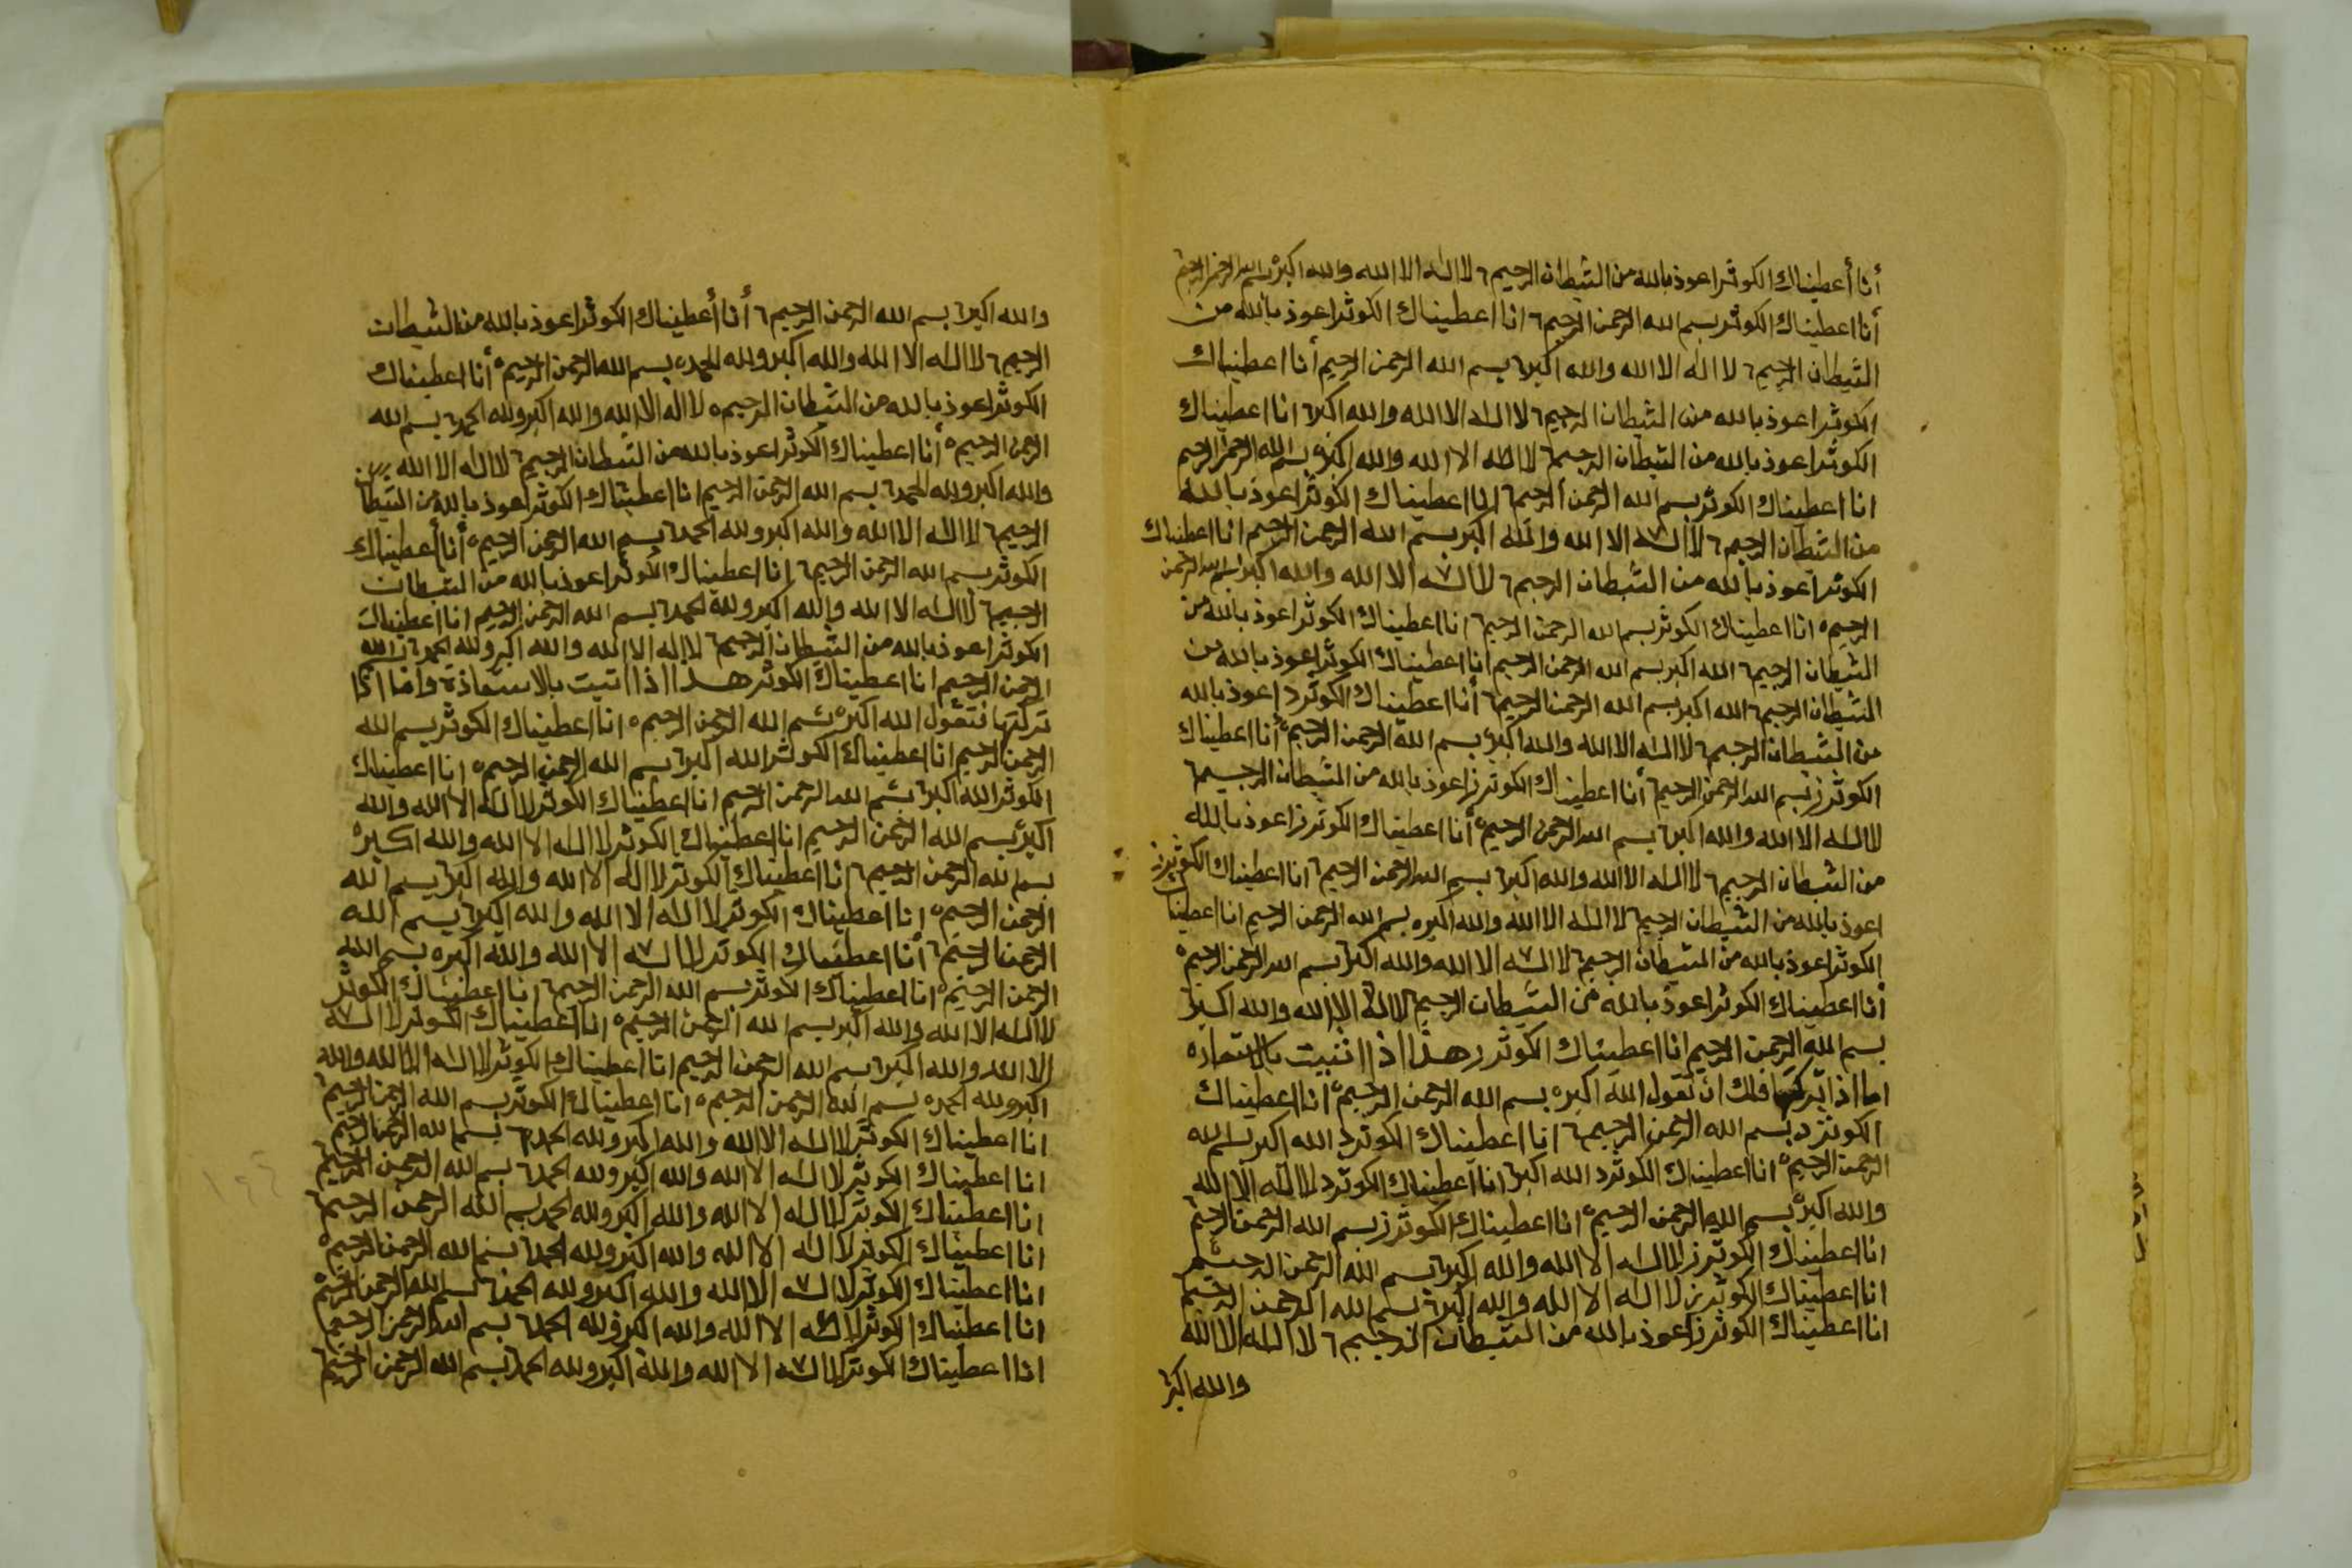 أنا أعطيناك الكوثر اعوذ بالله من الشيطان الرجيم لا اله الا الله والله اكبر بسم الله الرحمن الرحيم
أنا اعطيناك الكوثر بسم الله الرحمن الرحيم انا اعطيناك الكوثر اعوذ بالله من
الشيطان الرجيم لا اله الا الله والله اكبر بسم الله الرحمن الرحيم أنا اعطيناك
الكوثر اعوذ بالله من الشيطان الرجيم لا اله الا الله والله اكبر انا اعطيناك
الكوثر اعوذ بالله من الشيطان الرجيم لا اله الا الله والله اكبر بسم الله الرحمن الرحيم
انا اعطيناك الكوثر بسم الله الرحمن الرحيم انا اعطيناك الكوثر اعوذ بالله
من الشيطان الرجيم لا اله الا الله والله اكبر بسم الله الرحمن الرحيم انا اعطيناك
الكوثر اعوذ بالله من الشيطان الرجيم لا اله الا الله والله اكبر بسم الله الرحمن
الرحيم انا اعطيناك الكوثر بسم الله الرحمن الرحيم انا اعطيناك الكوثر اعوذ بالله من
الشيطان الرجيم الله اكبر بسم الله الرحمن الرحيم انا اعطيناك الكوثر اعوذ بالله من
الشيطان الرجيم الله اكبر بسم الله الرحمن الرحيم أنا اعطيناك الكوثر د اعوذ بالله
من الشيطان الرجيم لا اله الا الله والله اكبر بسم الله الرحمن الرحيم أنا اعطيناك
الكوثر ز بسم الله الرحمن الرحيم أنا اعطيناك الكوثر ز اعوذ بالله من الشيطان الرجيم
لا اله الا الله والله اكبر بسم الله الرحمن الرحيم أنا اعطيناك الكوثر ز اعوذ بالله
من الشيطان الرجيم لا اله الا الله والله اكبر بسم الله الرحمن الرحيم انا اعطيناك الكوثر ز
اعوذ بالله من الشيطان الرجيم لا اله الا الله والله اكبر بسم الله الرحمن الرحيم انا اعطينا
الكوثر اعوذ بالله من الشيطان الرجيم لا اله الا الله والله اكبر بسم الله الرحمن الرحيم
أنا اعطيناك الكوثر اعوذ بالله من الشيطان الرجيم لا اله الا الله والله اكبر
بسم الله الرحمن الرحيم انا اعطيناك الكوثر ر هذا اذا اتيت بالاستعاذه
اما اذا تركتها فلك ان تقول الله اكبر بسم الله الرحمن الرحيم انا اعطيناك
الكوثر د بسم الله الرحمن الرحيم انا اعطيناك الكوثر د الله اكبر بسم الله
الرحمن الرحيم انا اعطيناك الكوثر د الله اكبر انا اعطيناك الكوثر د لا اله الا الله
والله اكبر بسم الله الرحمن الرحيم انا اعطيناك الكوثر ز بسم الله الرحمن الرحيم
انا اعطيناك الكوثر ز لا اله الا الله والله اكبر بسم الله الرحمن الرحيم
انا اعطيناك الكوثر ز لا اله الا الله والله اكبر بسم الله الرحمن الرحيم
انا اعطيناك الكوثر ز اعوذ بالله من الشيطان الرجيم لا اله الا الله
والله اكبر
والله اكبر بسم الله الرحمن الرحيم أنا أعطيناك الكوثر اعوذ بالله من الشيطان
الرجيم لا اله الا الله والله اكبر ولله الحمد بسم الله الرحمن الرحيم أنا اعطيناك
الكوثر اعوذ بالله من الشيطان الرجيم لا اله الا الله والله اكبر ولله الحمد بسم الله
الرحمن الرحيم أنا اعطيناك الكوثر اعوذ بالله من الشيطان الرجيم لا اله الا الله
والله اكبر ولله الحمد بسم الله الرحمن الرحيم انا اعطيناك الكوثر اعوذ بالله من الشيطان
الرجيم لا اله الا الله والله اكبر ولله الحمد بسم الله الرحمن الرحيم أنا أعطيناك
الكوثر بسم الله الرحمن الرحيم انا اعطيناك الكوثر اعوذ بالله من الشيطان
الرجيم لا اله الا الله والله اكبر ولله الحمد بسم الله الرحمن الرحيم انا اعطيناك
الكوثر اعوذ بالله من الشيطان الرجيم لا اله الا الله والله اكبر ولله الحمد بسم الله
الرحمن الرحيم انا اعطيناك الكوثر هذا اذا اتيت بالاستعاذة واما اذا
تركتها فتقول الله اكبر بسم الله الرحمن الرحيم انا اعطيناك الكوثر بسم الله
الرحمن الرحيم انا اعطيناك الكوثر الله اكبر بسم الله الرحمن الرحيم انا اعطيناك
الكوثر الله اكبر بسم الله الرحمن الرحيم انا اعطيناك الكوثر لا اله الا الله والله
اكبر بسم الله الرحمن الرحيم انا اعطيناك الكوثر لا اله الا الله والله اكبر
بسم الله الرحمن الرحيم انا اعطيناك الكوثر لا اله الا الله والله اكبر بسم الله
الرحمن الرحيم انا اعطيناك الكوثر لا اله الا الله والله اكبر بسم الله
الرحمن الرحيم أنا اعطيناك الكوثر لا اله الا الله والله اكبر بسم الله
الرحمن الرحيم انا اعطيناك الكوثر بسم الله الرحمن الرحيم انا اعطيناك الكوثر
لا اله الا الله والله اكبر بسم الله الرحمن الرحيم انا اعطيناك الكوثر لا اله
الا الله والله اكبر بسم الله الرحمن الرحيم انا اعطيناك الكوثر لا اله الا الله والله
اكبر ولله الحمد بسم الله الرحمن الرحيم انا اعطيناك الكوثر بسم الله الرحمن الرحيم
انا اعطيناك الكوثر لا اله الا الله والله اكبر ولله الحمد بسم الله الرحمن الرحيم
انا اعطيناك الكوثر لا اله الا الله والله اكبر ولله الحمد بسم الله الرحمن الرحيم
انا اعطيناك الكوثر لا اله الا الله والله اكبر ولله الحمد بسم الله الرحمن الرحيم
انا اعطيناك الكوثر لا اله الا الله والله اكبر ولله الحمد بسم الله الرحمن الرحيم
انا اعطيناك الكوثر لا اله الا الله والله اكبر ولله الحمد بسم الله الرحمن الرحيم
انا اعطيناك الكوثر لا اله الا الله والله اكبر ولله الحمد بسم الله الرحمن الرحيم
انا اعطيناك الكوثر لا اله الا الله والله اكبر ولله الحمد بسم الله الرحمن الرحيم